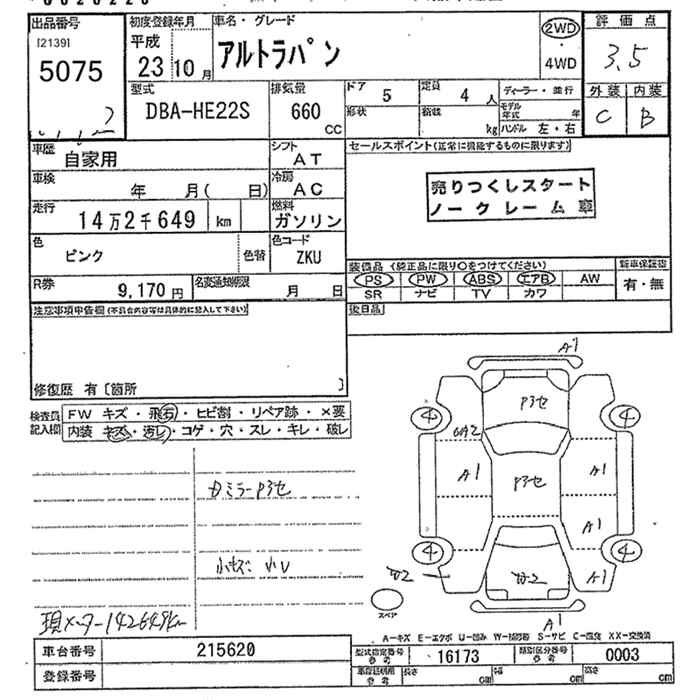 出品番号 初度登録年月 車名・グレード 2WD 評価点
[2139] 平成 アルトラパン 3.5
5075 23 10月 4WD 外装 内装
型式 排気量 ドア 5 定員 4人 ディーラー・並行 C B
DBA-HE22S 660 CC 形状 積載 kg モデル年式 年
ハンドル 左・右
車歴 自家用 シフト AT セールスポイント(正常に機能するものに限ります)
車検 年 月( 日) 冷房 AC 売りつくしスタート
走行 14万2千649 km 燃料 ガソリン ノークレーム車
色 ピンク 色替 色コード ZKU
装備品(純正品に限り○をつけてください) 新車保証書
R券 9,170円 名変通知期限 月 日 PS PW ABS エアB AW 有・無
SR ナビ TV カワ
注意事項申告欄(不具合内容等は具体的に記入して下さい) 後日品
修復歴 有〔箇所 〕
検査員記入欄 FW キズ・飛石・ヒビ割・リペア跡・×要
内装 キズ・汚レ・コゲ・穴・スレ・キレ・破レ
A1
4 4
A1 A1
A1
4 4
A1
スペア
A1
小キズ 小U
現メーター142649km
A-キズ E-エクボ U-凹み W-補修跡 S-サビ C-腐食 XX-交換済
車台番号 215620 型式指定番号 参考 16173 類別区分番号 参考 0003
登録番号 車庫証明用 参考 長さ cm 幅 cm 高さ cm